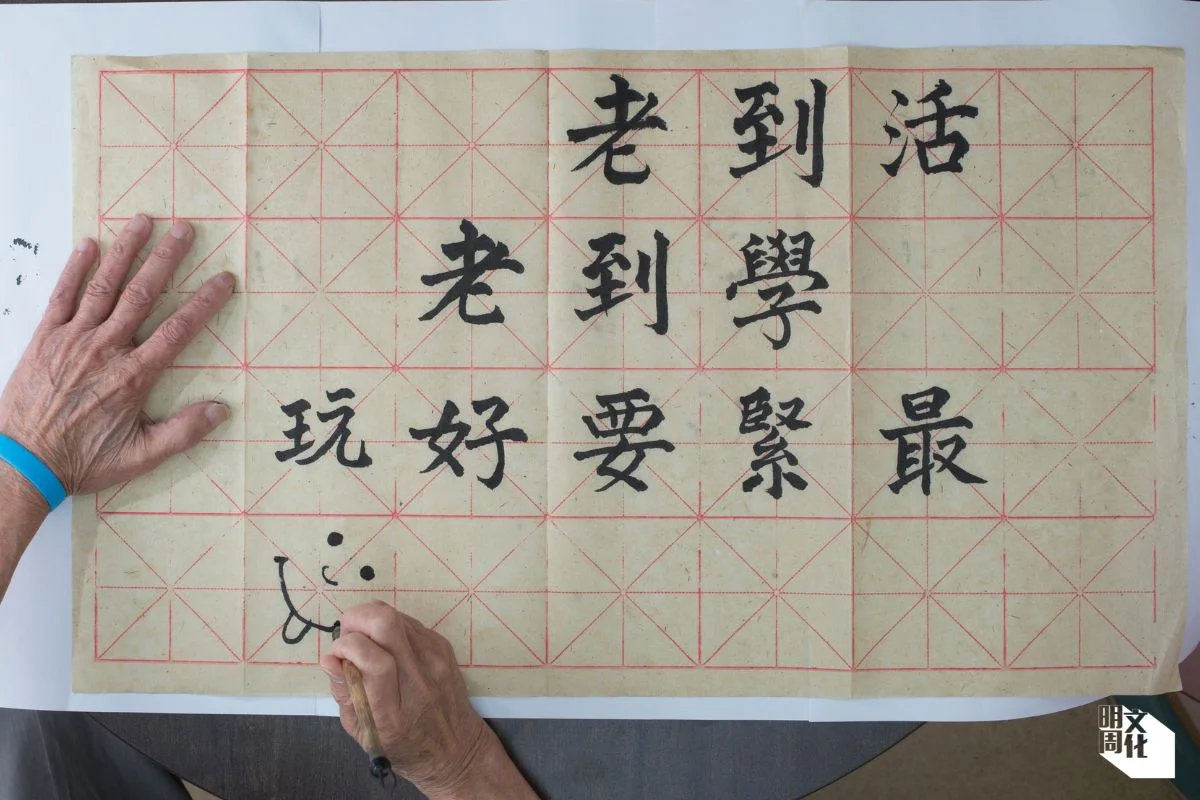 活到老
學到老
最緊要好玩
明周文化